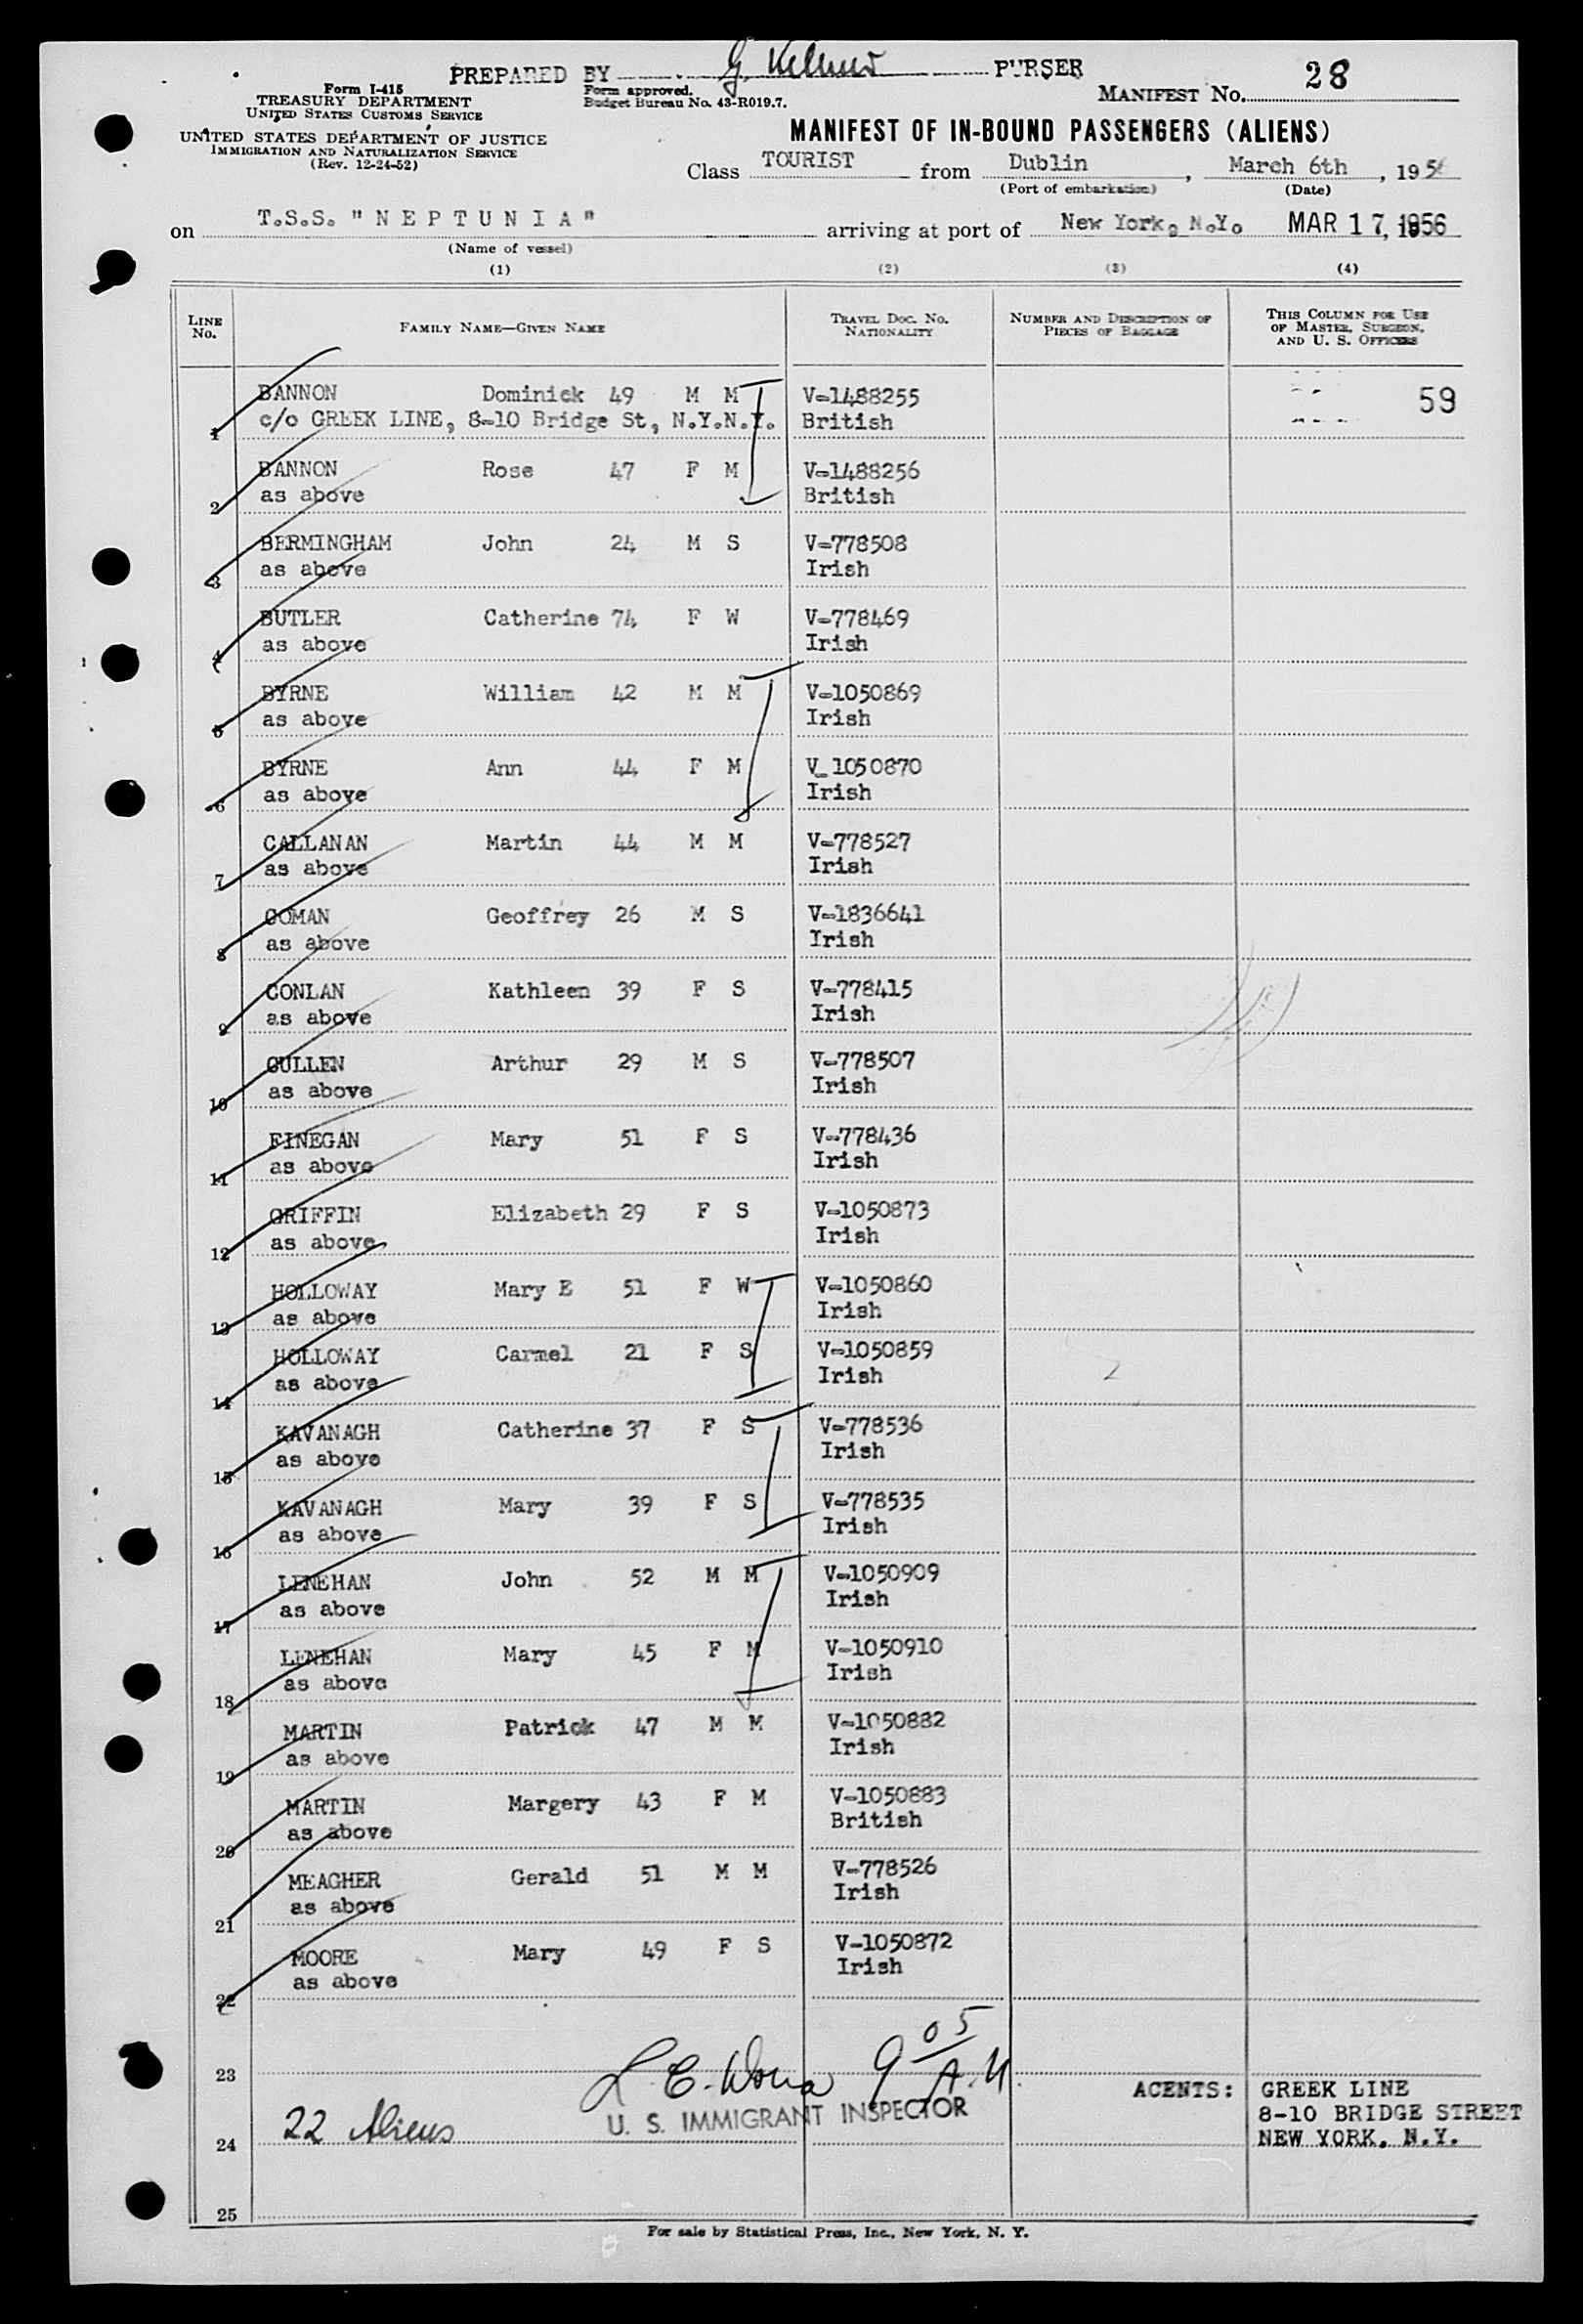 PREPARED BY G. PURSER
Form I-415
TREASURY DEPARTMENT
UNITED STATES CUSTOMS SERVICE
UNITED STATES DEPARTMENT OF JUSTICE
IMMIGRATION AND NATURALIZATION SERVICE
(Rev. 12-24-52)
Form approved.
Budget Bureau No. 43-R019.7.
MANIFEST NO. 28
MANIFEST OF IN-BOUND PASSENGERS (ALIENS)
Class TOURIST from Dublin, March 6th, 1956
(Port of embarkation) (Date)
on T.S.S. "NEPTUNIA" arriving at port of New York, N.Y. MAR 17, 1956
(Name of vessel)
(1) (2) (3) (4)
LINE NO. FAMILY NAME—GIVEN NAME TRAVEL DOC. NO. NATIONALITY NUMBER AND DESCRIPTION OF PIECES OF BAGGAGE THIS COLUMN FOR USE OF MASTER, SURGEON, AND U. S. OFFICERS
BANNON Dominick 49 M M V-1488255 59
1 c/o GREEK LINE, 8-10 Bridge St, N.Y.N.Y. British
BANNON Rose 47 F M V-1488256
2 as above British
BERMINGHAM John 24 M S V-778508
3 as above Irish
BUTLER Catherine 74 F W V-778469
4 as above Irish
BYRNE William 42 M M V-1050869
5 as above Irish
BYRNE Ann 44 F M V_1050870
6 as above Irish
CALLANAN Martin 44 M M V-778527
7 as above Irish
COMAN Geoffrey 26 M S V-1836641
8 as above Irish
CONLAN Kathleen 39 F S V-778415
9 as above Irish
CULLEN Arthur 29 M S V-778507
10 as above Irish
FINEGAN Mary 51 F S V-778436
11 as above Irish
GRIFFIN Elizabeth 29 F S V-1050873
12 as above Irish
HOLLOWAY Mary E 51 F W V-1050860
13 as above Irish
HOLLOWAY Carmel 21 F S V-1050859
14 as above Irish
KAVANAGH Catherine 37 F S V-778536
15 as above Irish
KAVANAGH Mary 39 F S V-778535
16 as above Irish
LENEHAN John 52 M M V-1050909
17 as above Irish
LENEHAN Mary 45 F M V-1050910
18 as above Irish
MARTIN Patrick 47 M M V-1050882
19 as above Irish
MARTIN Margery 43 F M V-1050883
20 as above British
MEAGHER Gerald 51 M M V-778526
21 as above Irish
MOORE Mary 49 F S V-1050872
22 as above Irish
23 L. E. 9 05 A.M.
U. S. IMMIGRANT INSPECTOR
24 22 Aliens
AGENTS: GREEK LINE
8-10 BRIDGE STREET
NEW YORK, N.Y.
25
For sale by Statistical Press, Inc., New York, N. Y.